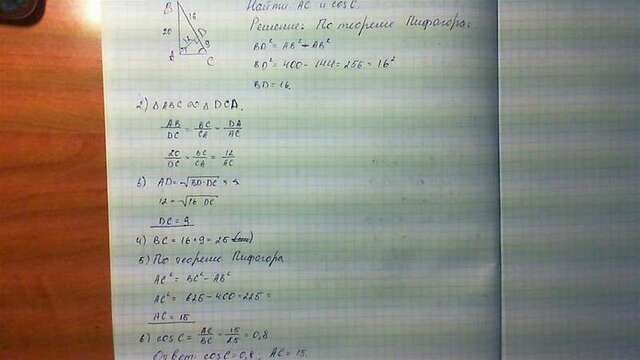 B
16
20
12
D
9
A
C
Найти AC и cosC.
Решение: По теореме Пифагора:
BD² = AB² - AB²
BD² = 400 - 144 = 256 = 16²
BD = 16.
2) △ABC ∞ △DCA.
AB/DC = BC/CA = DA/AC
20/DC = BC/CA = 12/AC
3) AD = √BD·DC
12 = √16 DC
DC = 9
4) BC = 16 + 9 = 25
5) По теореме Пифагора
AC² = BC² - AB²
AC² = 625 - 400 = 225 =
AC = 15
6) cosC = AC/BC = 15/25 = 0,8
Ответ: cosC = 0,8, AC = 15.